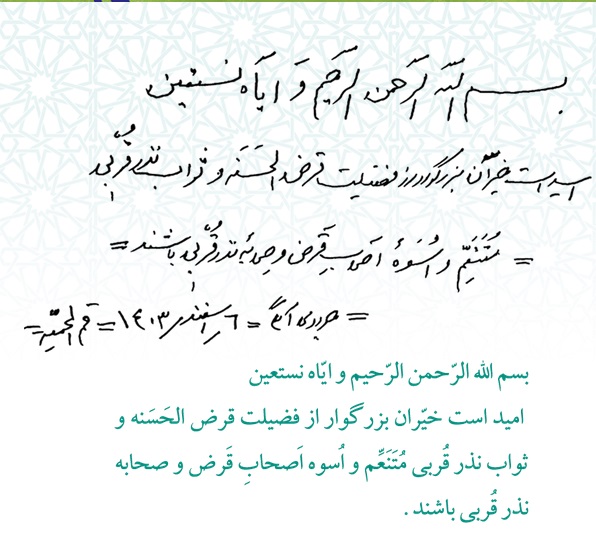 بسم الله الرَّحمن الرَّحیم وَ ایّاه نستعین
امید است خیّران بزرگوار از فضیلت قرض الحَسَنه و ثواب نذر قُربی
= مُتَنَعِّم و اُسوهٔ اصحابِ قَرض و صحابهٔ نذر قُربی باشند =
= جوادی آملی = ٦ اسفند ١٤٠٣ = قم المحمیّة =
بسم الله الرّحمن الرّحیم و ایّاه نستعین
امید است خیّران بزرگوار از فضیلت قرض الحَسَنه و
ثواب نذر قُربی مُتَنَعِّم و اُسوه اَصحابِ قَرض و صحابه
نذر قُربی باشند .